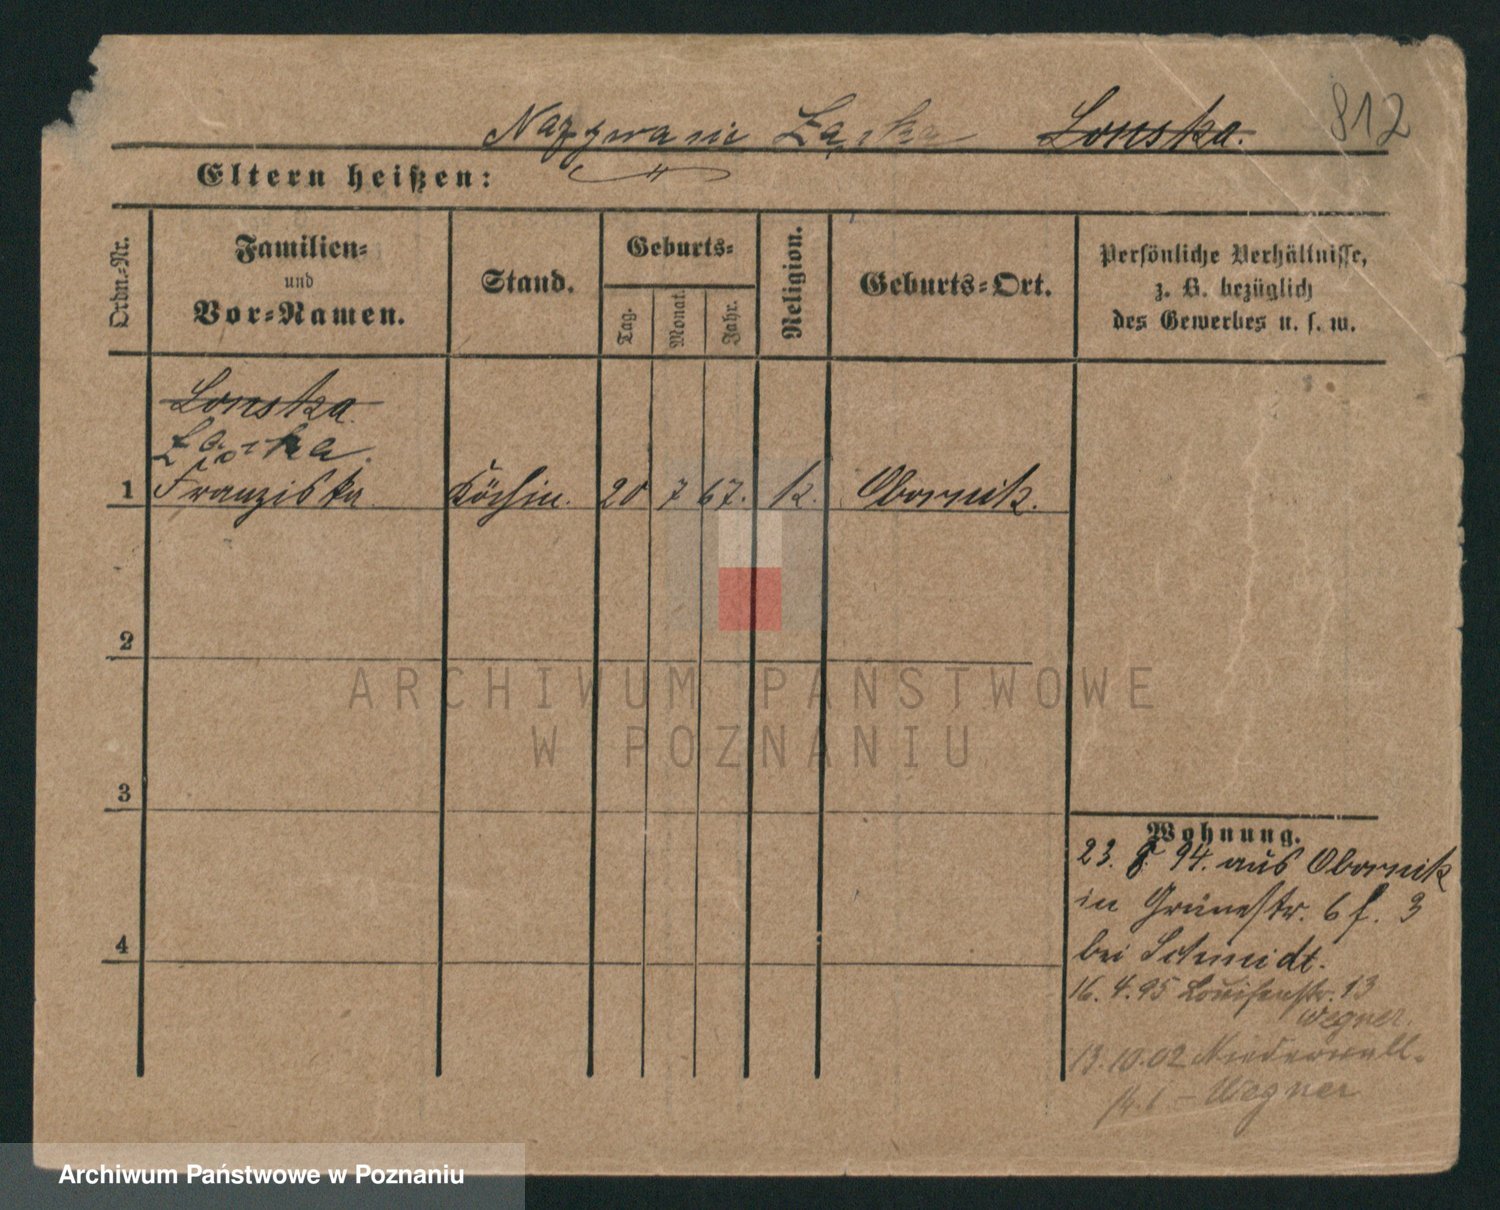 Lonska. 812
Eltern heißen:
Ordn.-Nr.
Familien-
und
Vor-Namen.
Stand.
Geburts-
Tag.
Monat.
Jahr.
Religion.
Geburts-Ort.
Persönliche Verhältnisse,
z. B. bezüglich
des Gewerbes u. s. w.
Lonska.
1 Franziska Köchin. 20 7 67. k. Obornik.
2
3
4
Wohnung.
23. 8. 94. aus Obornik
in Grünestr. 6 f. 3
bei Schmidt.
16. 4. 95 Louisenstr. 13
Wegner.
13. 10. 02 Niederwall-
Wegner
ARCHIWUM PAŃSTWOWE
W POZNANIU
Archiwum Państwowe w Poznaniu